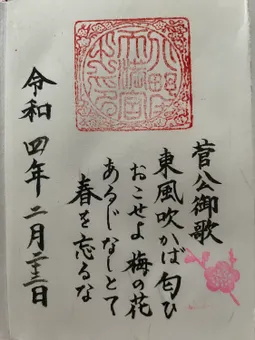 菅公御歌
東風吹かば匂ひ
おこせよ梅の花
あるじなしとて
春を忘るな
令和四年二月二十三日